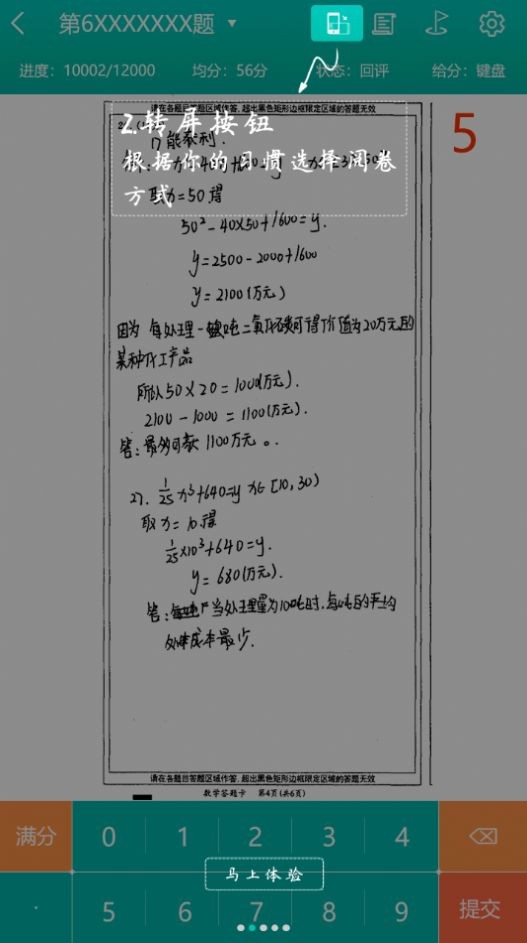 第6XXXXXXX题
进度：10002/12000 均分：56分 状态：回评 给分：键盘
请在各题目答题区域作答，超出黑色矩形边框限定区域的答题无效
5
2.转屏按钮
根据你的习惯选择阅卷
方式
不能获利.
取x=50得
50²-40×50+1600=y.
y=2500-2000+1600
y=2100(万元)
因为 每处理一吨二氧化碳可得价值为20万元的
某种化工产品
所以50×20=1000(万元).
2100-1000=1100(万元).
答:最多可获1100万元。.
27. 1/25 x³+640=y x∈[10,30)
取x=10得
1/25×10³+640=y.
y=680(万元).
答:当处理量为10吨时,每吨的平均
处理成本最少.
请在各题目答题区域作答，超出黑色矩形边框限定区域的答题无效
数学答题卡 第4页(共6页)
满分 0 1 2 3 4
马上体验
. 5 6 7 8 9 提交